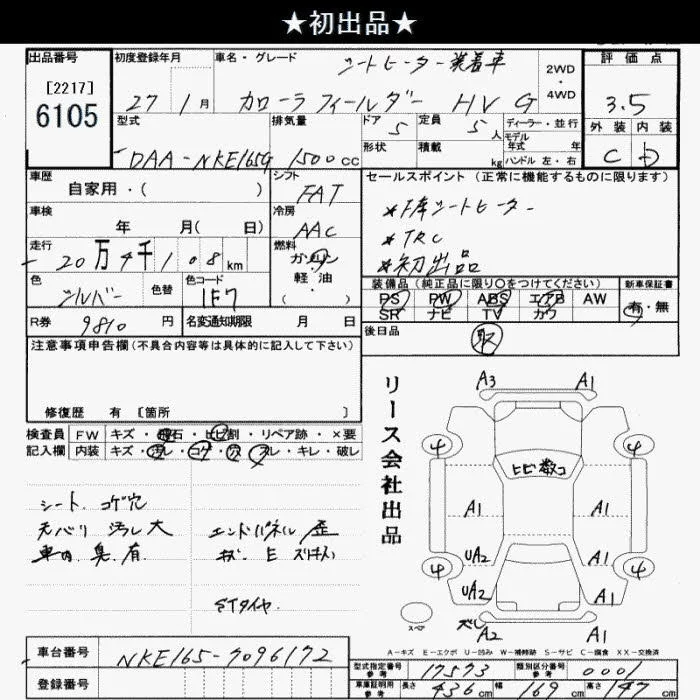 ★初出品★
出品番号
[2217]
6105
初度登録年月
27 / 1 月
車名・グレード
シートヒーター装着車
カローラフィールダー HV G
2WD
・
4WD
評価点
3.5
外装 内装
C D
型式
DAA-NKE165G
排気量
1500 cc
ドア 5
形状
定員 5 人
積載 kg
ディーラー・並行
モデル
年式 年
ハンドル 左・右
車歴
自家用・( )
シフト
FAT
車検
年 月( 日)
冷房
AAC
走行
20万4千108 km
燃料
ガソリン
軽油
・( )
色
シルバー
色替
色コード
1F7
R券 9810 円
名変通知期限 月 日
セールスポイント(正常に機能するものに限ります)
*T席シートヒーター
*TRC
*初出品
装備品(純正品に限り○をつけてください)
PS PW ABS エアB AW
SR ナビ TV カワ
新車保証書
有・無
後日品
取
注意事項申告欄(不具合内容等は具体的に記入して下さい)
修復歴 有 〔箇所 〕
検査員 FW キズ・飛石・ヒビ割・リペア跡・×要
記入欄 内装 キズ・汚レ・コゲ・穴・スレ・キレ・破レ
シート、コゲ穴
天バリ 汚レ大
車内 臭 有
エンドパネル 歪
キズ・E
STタイヤ
リース会社出品
A3 A1
4 4
ヒビ数コ
A1 A1
UA2 A1
4 4
UA2 A1
A2 A1
スペア
A-キズ E-エクボ U-凹み W-補修跡 S-サビ C-腐食 XX-交換済
車台番号 NKE165-7096172
登録番号
型式指定番号
参考
17573
類別区分番号
参考
0001
車庫証明用
参考
長さ 436 cm 幅 169 cm 高さ 147 cm